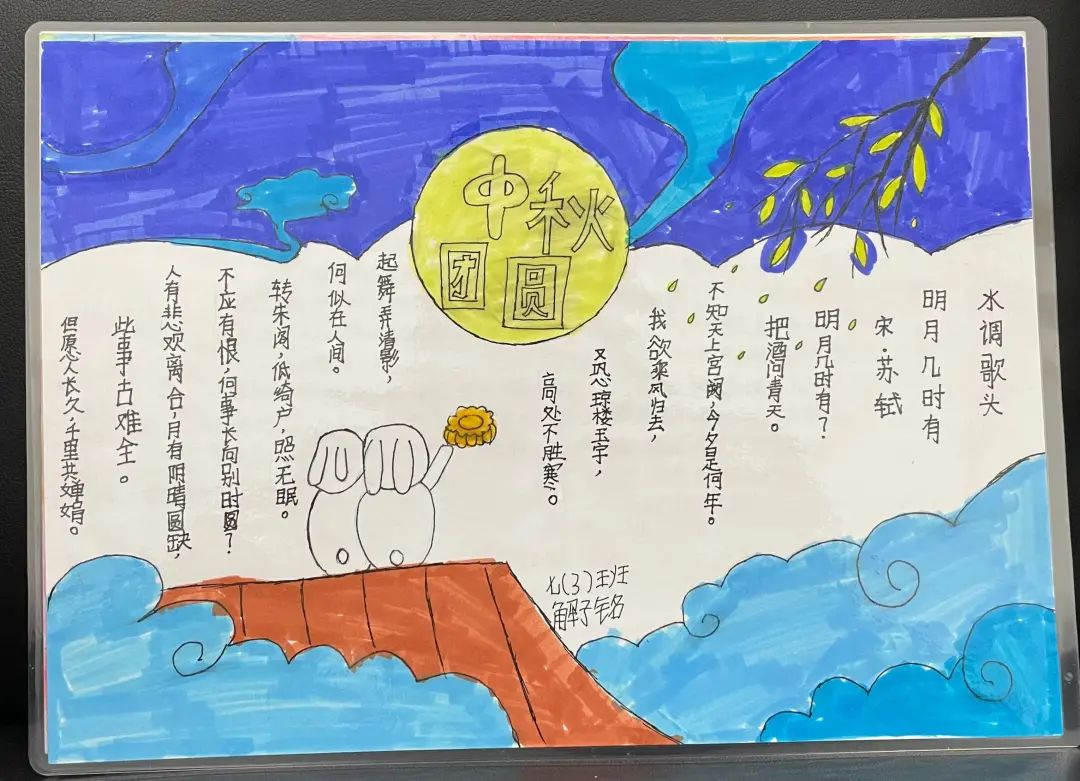 中秋
团圆
水调歌头
明月几时有
宋·苏轼
明月几时有？
把酒问青天。
不知天上宫阙，今夕是何年。
我欲乘风归去，
又恐琼楼玉宇，
高处不胜寒。
起舞弄清影，
何似在人间。
转朱阁，低绮户，照无眠。
不应有恨，何事长向别时圆？
人有悲欢离合，月有阴晴圆缺，
此事古难全。
但愿人长久，千里共婵娟。
七（3）班
解子铭